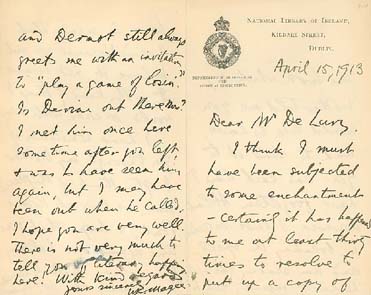 NATIONAL LIBRARY OF IRELAND,
KILDARE STREET,
DUBLIN.
April 15, 1913
Dear Mr De Lury,
I think I must
have been subjected
to some enchantments
- certainly it has happened
to me at least thing
times to resolve to
put up a copy of
and Dermot still always
greets me with an invitation
to "play a game of
Is Devran out there
I met him once here
some time after you left,
& was to have seen him
again, but I may have
been out when he called.
I hope you are very well
there is not very much to
tell you literary happening
here. With kind regards
yours sincerely
W.K. Magee